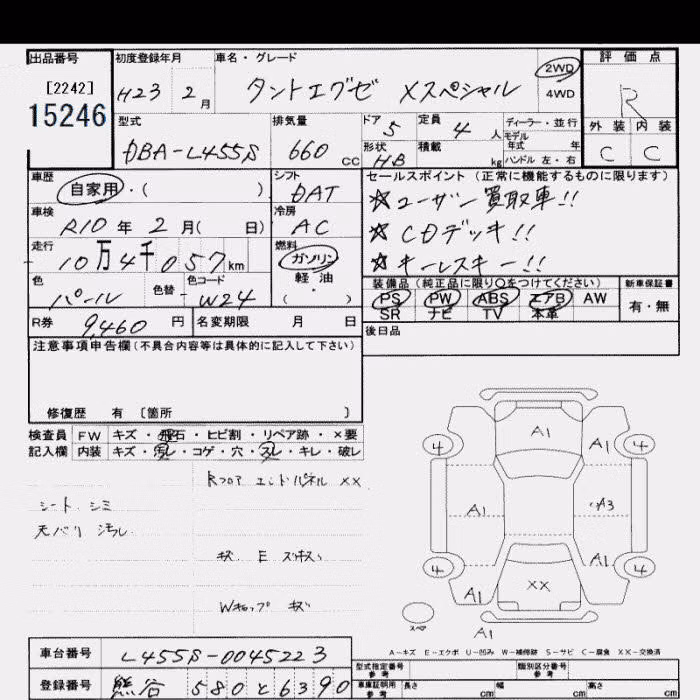 出品番号
[2242]
15246
初度登録年月
H23 2月
車名・グレード
タントエグゼ Xスペシャル
2WD
4WD
評価点
R
外装 内装
C C
型式
DBA-L455S
排気量
660 cc
ドア 5
定員 4 人
形状 HB
積載 kg
ディーラー・並行
モデル年式 年
ハンドル 左・右
車歴
自家用・( )
シフト
DAT
セールスポイント(正常に機能するものに限ります)
☆ユーザー買取車!!
☆CDデッキ!!
☆キーレスキー!!
車検
R10年 2月( 日)
冷房
AC
走行
10万4千057km
燃料
ガソリン
軽油
( )
色
パール
色替
色コード
W24
装備品(純正品に限り○をつけてください)
PS PW ABS エアB AW
SR ナビ TV 本革
新車保証書
有・無
R券 9,460 円
名変期限 月 日
後日品
注意事項申告欄(不具合内容等は具体的に記入して下さい)
修復歴 有 〔箇所 〕
検査員 FW キズ・飛石・ヒビ割・リペア跡・×要
記入欄 内装 キズ・汚レ・コゲ・穴・スレ・キレ・破レ
Rフロア エンドパネル XX
シート シミ
天バリ 汚レ
キズ E
Wキャップ キズ
A1
4 A1 4
A1 A3
4 A1 4
XX
A1
スペア
A1
A-キズ E-エクボ U-凹み W-補修跡 S-サビ C-腐食 XX-交換済
車台番号
L455S-0045223
登録番号
熊谷 580 と 6390
型式指定番号 参考
類別区分番号 参考
車庫証明用 参考
長さ cm
幅 cm
高さ cm